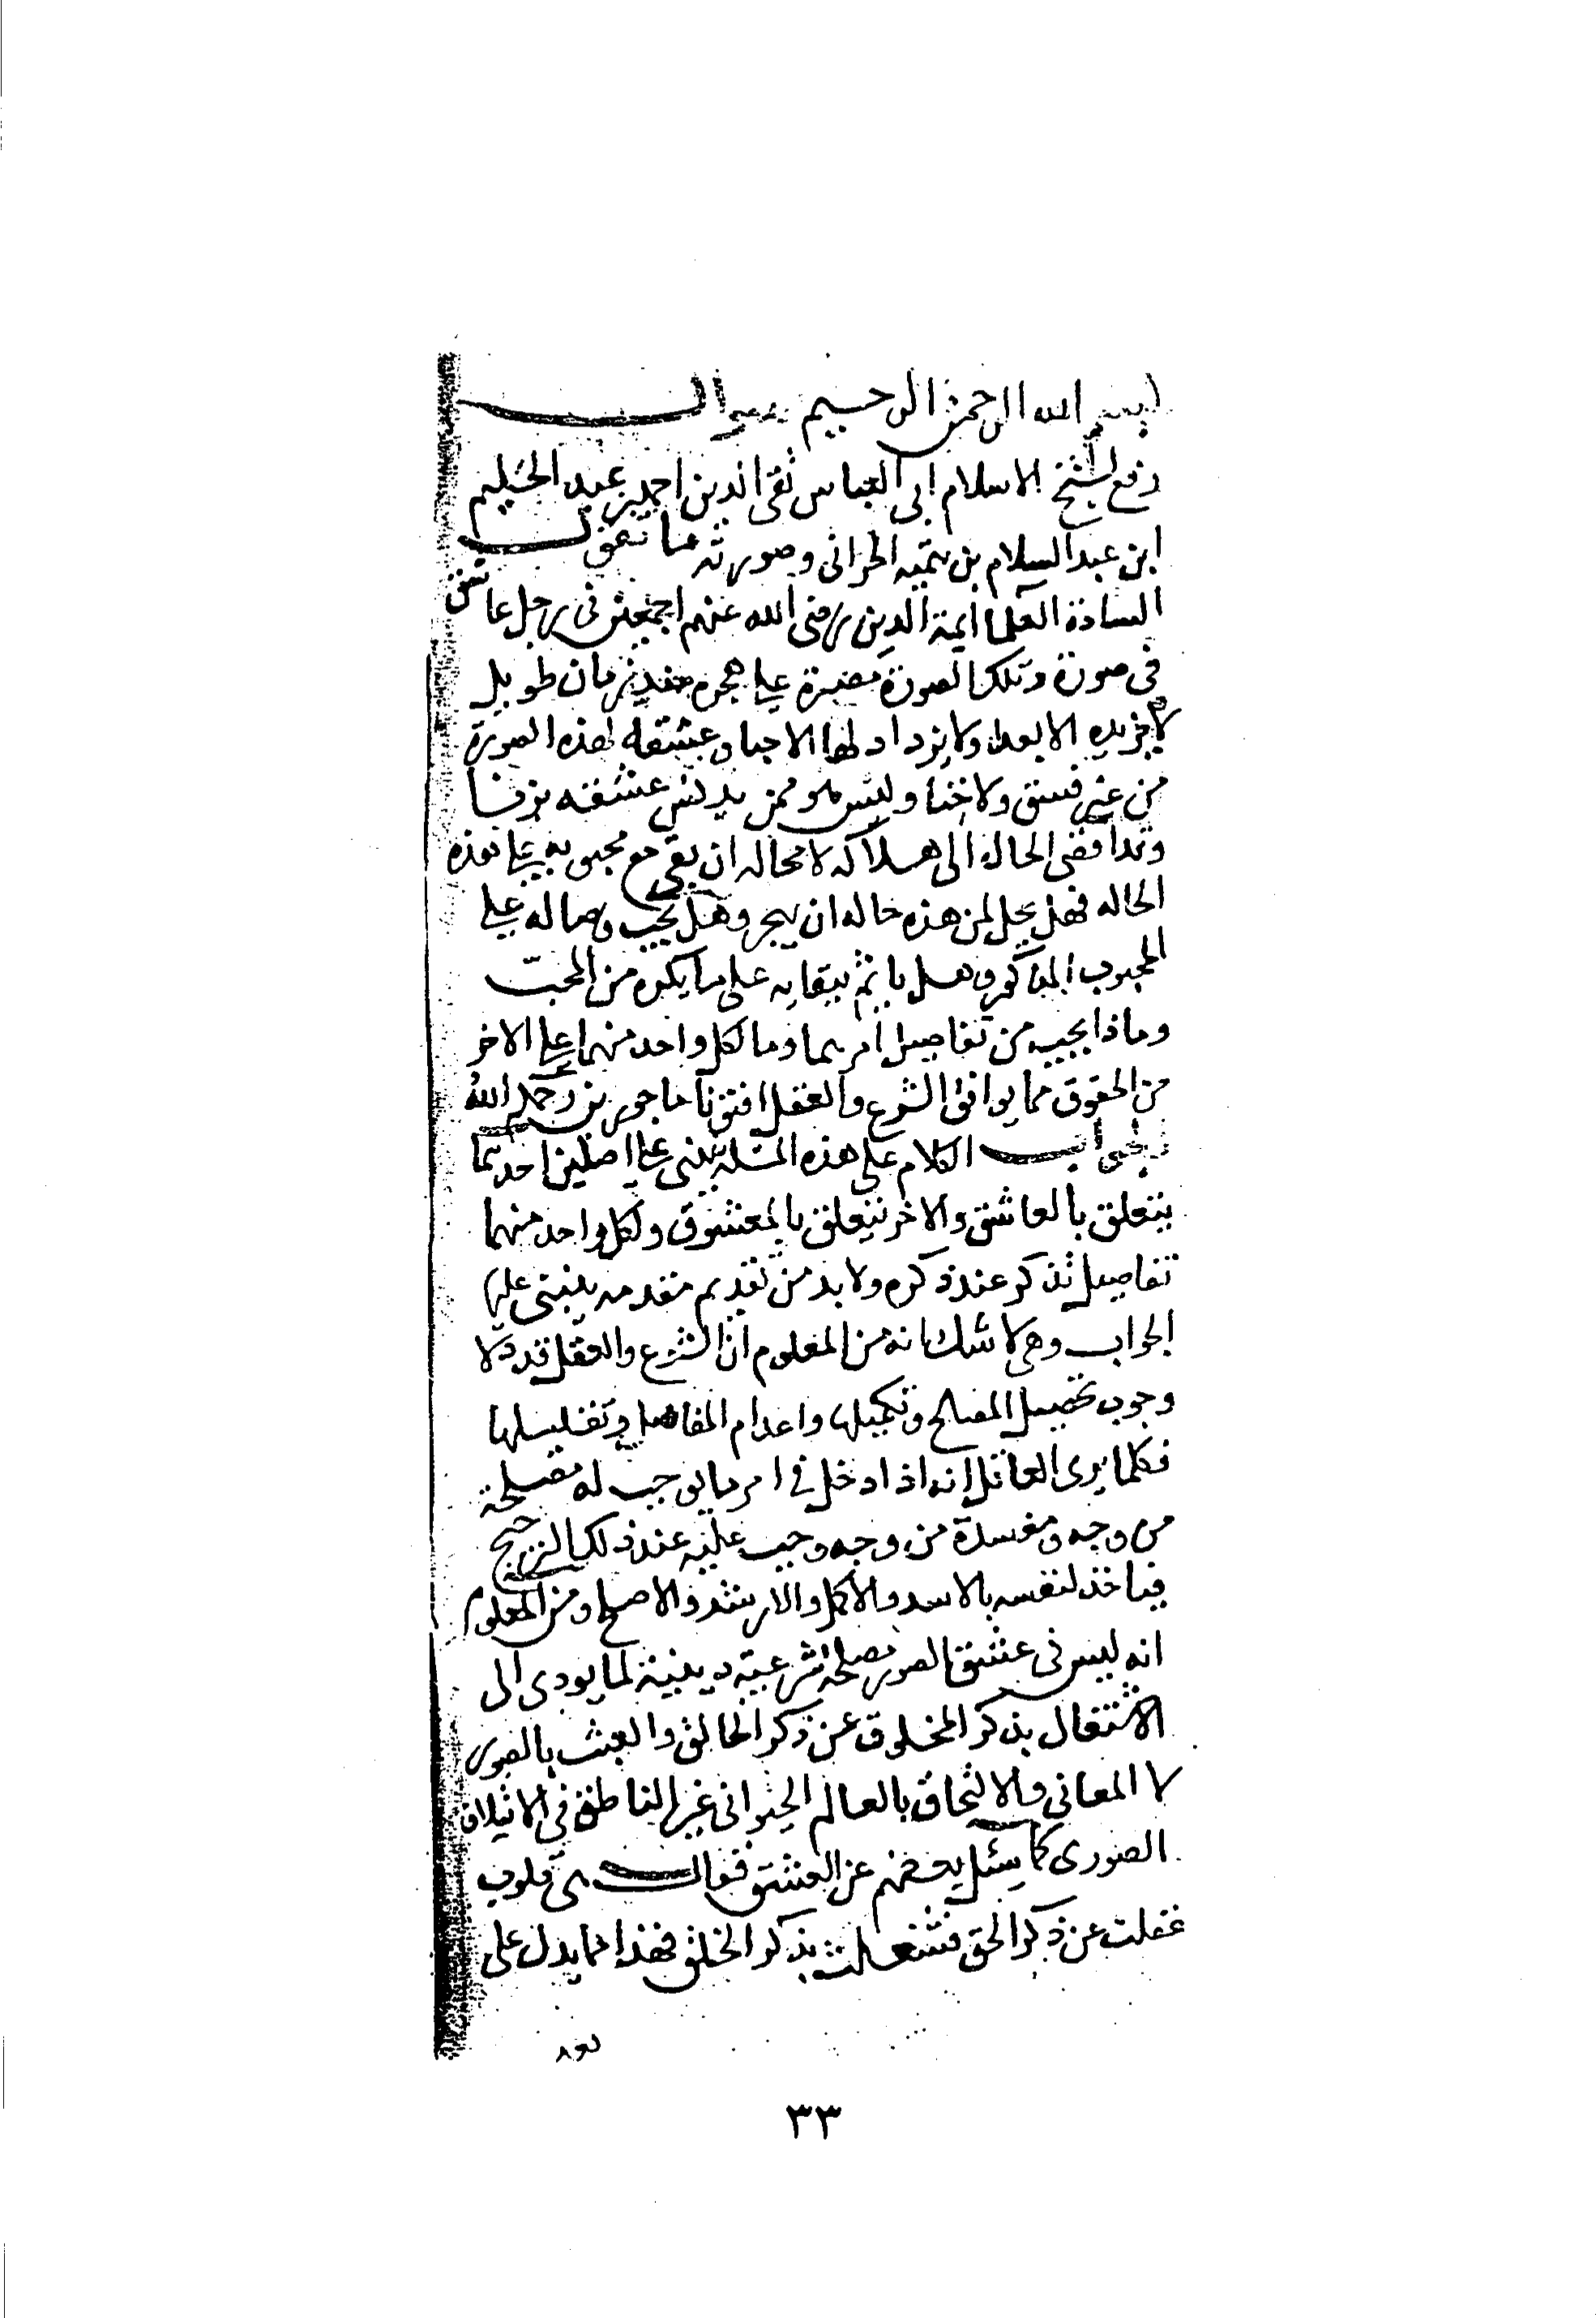 بسم الله الرحمن الرحيم سوال
رفع لشيخ الاسلام ابى العباس تقى الدين احمد بن عبد الحليم
ابن عبد السلام بن تيميه الحرانى وصورته ما تقول
السادة العلما ايمة الدين رضى الله عنهم اجمعين فى رجل عاشق
فى صورة وتلك الصورة مصرة على هجره منذ زمان طويل
لا تزيده الا بعدا ولا يزداد لها الا حبا وعشقه لهذه الصورة
من غير فسق ولا خنا وليس هو ممن يدنس عشقه بزنا
وقد افضى الحال الى هلاكه لا محاله ان بقى مع محبوبه على هذه
الحاله فهل يحل لمن هذه حاله ان يهجر وهل يجب وصاله على
المحبوب المذكور وهل ياثم ببقايه على ما يكره من المحبت
وماذا يجب من تفاصيل امرهما وما لكل واحد منهما على الاخر
من الحقوق مما يوافق الشرع والعقل افتونا ماجورين رحمكم الله
الجواب الكلام على هذه المسئله ينبنى على اصلين احدهما
يتعلق بالعاشق والاخر يتعلق بالمعشوق ولكل واحد منهما
تفاصيل تذكر عند ذكره ولا بد من تقديم مقدمه ينبنى عليها
الجواب وهى لا شك انه من المعلوم ان الشرع والعقل قد دلا
وجوب تحصيل المصالح وتكميلها واعدام المفاسد وتقليلها
فكلما يرى العاقل انه اذا دخل فى امر ما يوجب له مصلحة
من وجه ومفسدة من وجه وجب عليه عند ذلك الترجيح
فياخذ لنفسه بالاسد والاكمل والارشد والاصلح ومن المعلوم
انه ليس فى عشق الصور مصلحة شرعية دينية لما يودى الى
الاشتغال بذكر المخلوق عن ذكر الخالق والعبث بالصور
لا المعانى والالتحاق بالعالم الحيوانى غير الناطق فى الائتلاف
الصورى كما سئل بعضهم عن العشق فقال هى قلوب
غفلت عن ذكر الحق فشغلت بذكر الخلق فهذا مما يدل على
٣٣